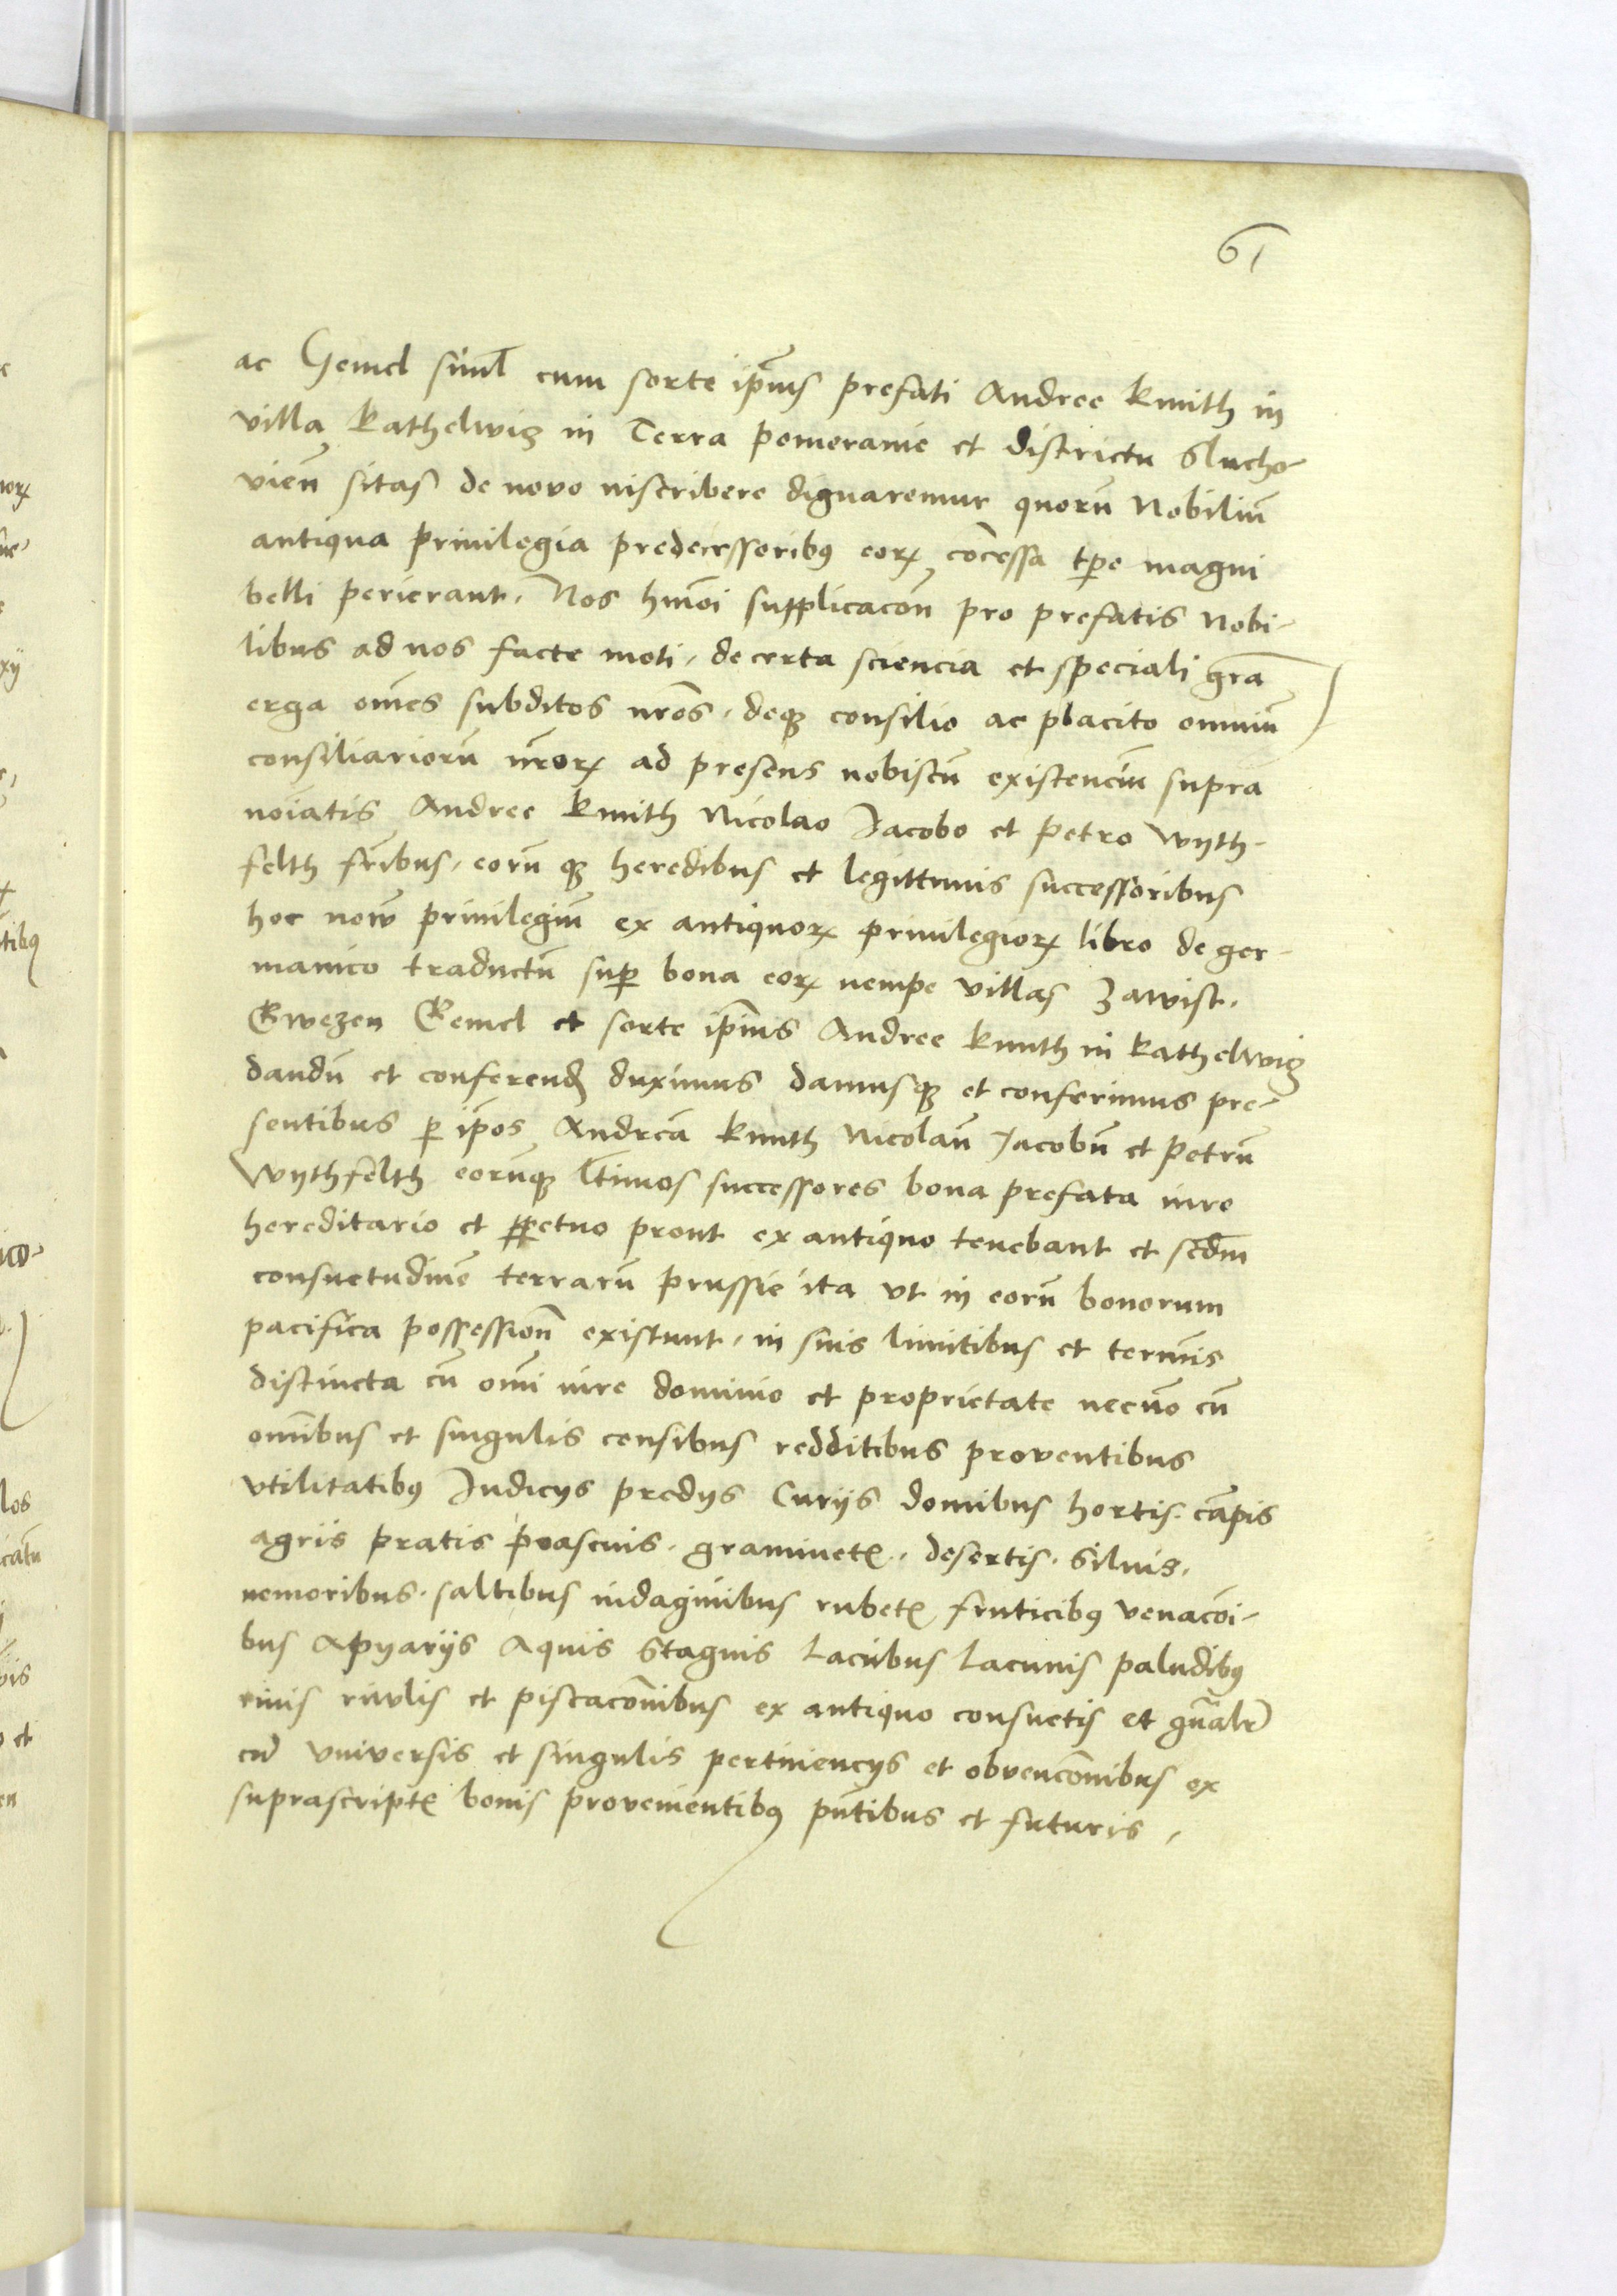 61
ac Gemel siml cum sorte ipius prefati Andree kmith in
villa kathelwig in Terra pomeranie et districtu Slucho-
vien sitas de novo inscribere dignaremur quoru Nobiliu
antiqua privilegia predecessoribus eorum concessa tpe magni
belli perierant. Nos hmoi supplicacon pro prefatis Nobi-
libus ad nos facte moti, de certa sciencia et speciali gra
erga omes subditos nros, deque consilio ac placito omniu
consiliarioru nrorum ad presens nobiscu existenciu supra
noiatis Andree kmith Nicolao Jacobo et petro wyth-
felth fribus, eoruque heredibus et legittimis successoribus
hoc novu privilegiu ex antiquorum privilegiorum libro de ger-
manico traductu super bona eorum nempe villas Zawist,
Gwezen Gemel et sorte ipius Andree kmith in kathelwig
dandu et conferend duximus damusque et conferimus pre-
sentibus per ipos Andrea kmith Nicolau Jacobu et petru
wythfelth eorumque ltimos successores bona prefata iure
hereditario et perpetuo prout ex antiquo tenebant et scdm
consuetudine terraru prussie ita vt in eoru bonorum
pacifica possession existunt, in suis limitibus et terminis
distincta cu omi iure dominio et proprietate necno cu
omibus et singulis censibus redditibus proventibus
vtilitatibus Judicys predys Curiis domibus hortis. capis
agriis pratis poascuis. graminetis. desertis. Siluis.
nemoribus. saltibus indaginibus rubetis fruticibus venacoi-
bus Apyariis Aquis Stagnis Lacubus Lacunis paludibus
rivis rivulis et piscaconibus ex antiquo consuetis et gnaliter
cu vniversis et singulis pertinencys et obvenconibus ex
suprascriptis bonis provenientibus pntibus et futuris,